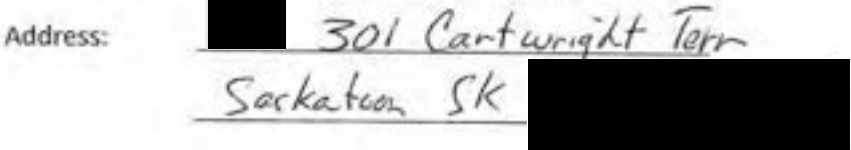 Address: 301 Cartwright Terr
Saskatoon SK